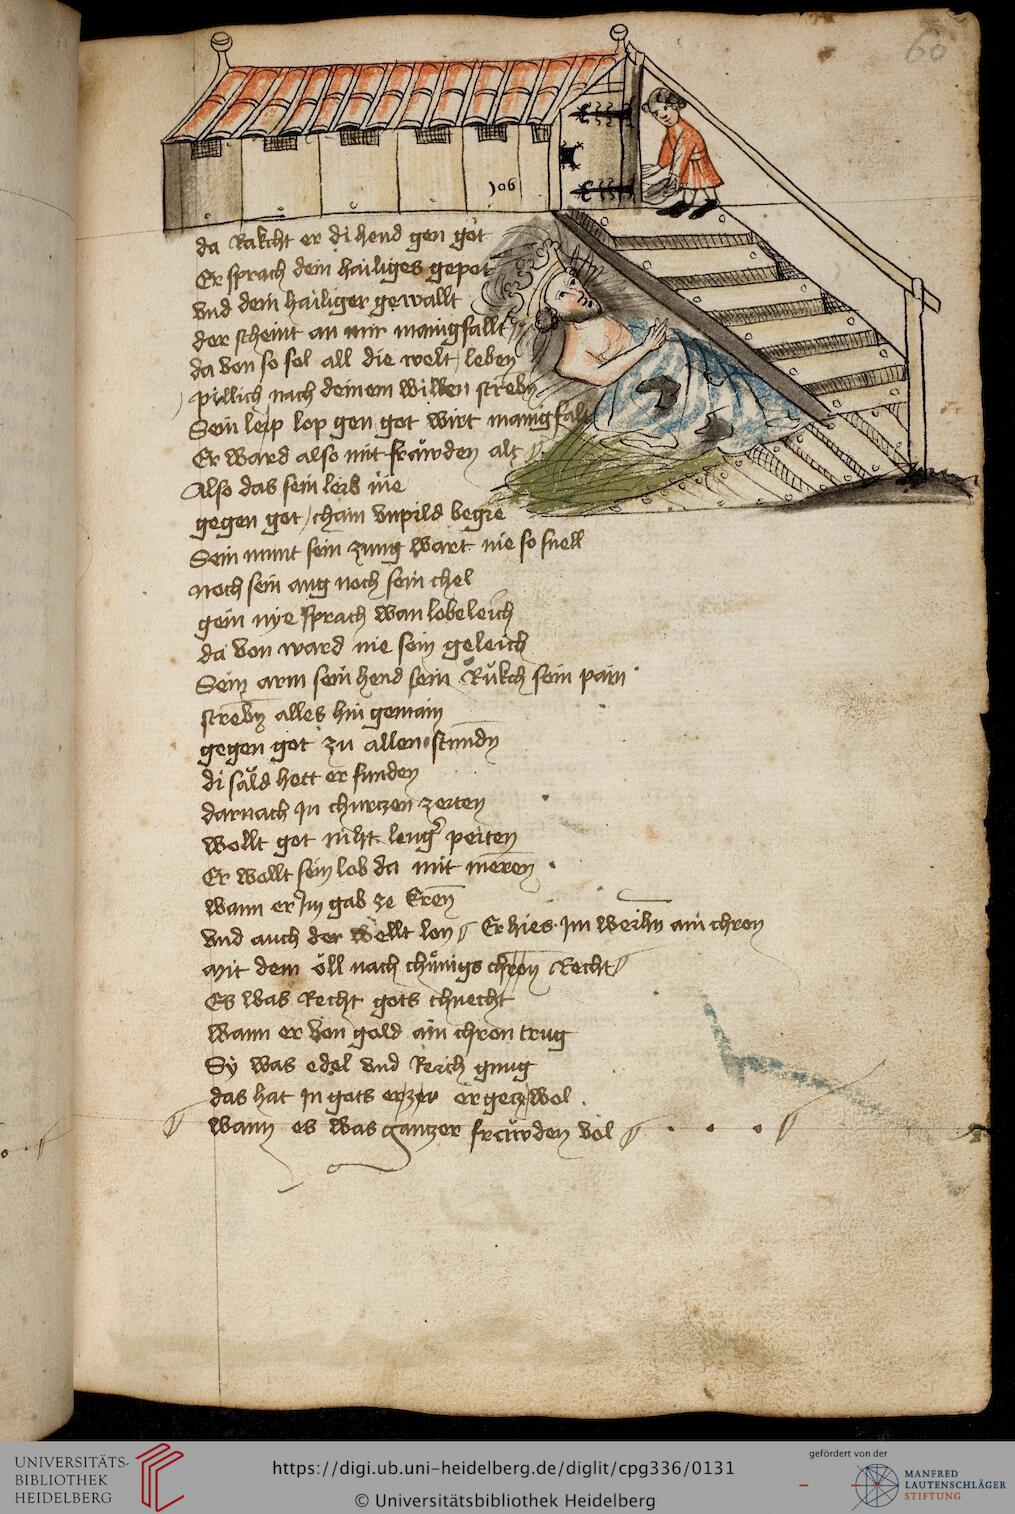 60
106
da Rakcht er di hend gen got
Er sprach dein hailiges gepot
vnd dein hailiger gewallt
der scheint an mir manigfallt
da von so sol all die welt leben
pillich nach deinem willen streben
Sein leip lop gen got wirt manigfalt
Er ward also mit fräwden alt
Also das sein leib nie
gegen got cham vnpild begie
Sein munt sein zung wart nie so snell
noch sein aug noch sein chel
gein nye sprach wan lobeleich
da von ward nie sein geleich
Sein arm sein hend sein Rukch sein pain
streben alles hin gemain
gegen got zu allen stunden
di säld hett er funden
darnach jn churtzen zeiten
wollt got niht lenger peiten
Er wollt sein lob da mit meren
wann er Jm gab ze Eren
vnd auch der wellt lon Er hies Jm weihn ain chron
Mit dem öll nach chünigs chron Recht
Es was Recht gots chnecht
wann er von gold ain chron trug
Sy was edel vnd Reich gnug
das hat Jn gots er ergetzt wol
wann es was gantzer fräwden vol
UNIVERSITÄTS-
BIBLIOTHEK
HEIDELBERG
https://digi.ub.uni-heidelberg.de/diglit/cpg336/0131
© Universitätsbibliothek Heidelberg
gefördert von der
MANFRED
LAUTENSCHLÄGER
STIFTUNG